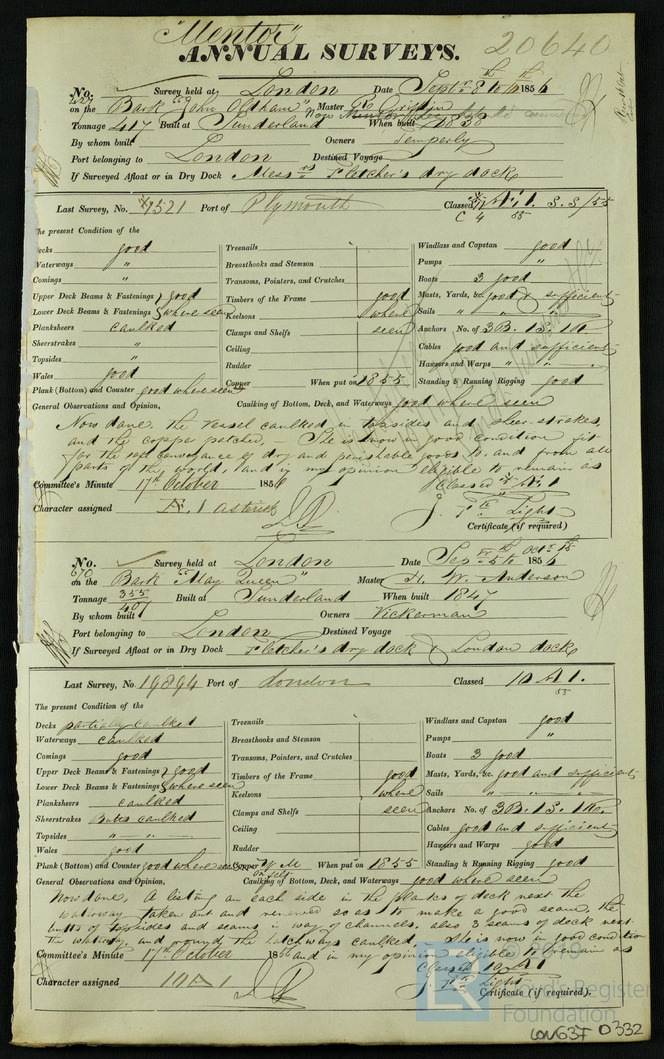 "Mentor"
ANNUAL SURVEYS. 20640
No. Survey held at London Date Septr 8th to 16th 1856
427 on the Bark "John Oldham" Master
Now Mentor
Tonnage 417 Built at Sunderland When built 1838
By whom built Owners Temperly
Port belonging to London Destined Voyage
If Surveyed Afloat or in Dry Dock Messrs Fletcher's dry dock
Last Survey, No. 7521 Port of Plymouth Classed A1. S.S/55
C 4 55
The present Condition of the
Decks good Treenails Windlass and Capstan good
Waterways " Breasthooks and Stemson Pumps "
Comings " Transoms, Pointers, and Crutches Boats 3 good
Upper Deck Beams & Fastenings good Timbers of the Frame good Masts, Yards, &c. good & sufficient
Lower Deck Beams & Fastenings where seen Keelsons where Sails " " "
Planksheers caulked Clamps and Shelfs seen Anchors No. of 3B. 1S. 1K.
Sheerstrakes " Ceiling Cables good and sufficient
Topsides " Rudder Hawsers and Warps " " "
Wales good Copper When put on 1855 Standing & Running Rigging good
Plank (Bottom) and Counter good where seen
General Observations and Opinion, Caulking of Bottom, Deck, and Waterways good where seen
Now done. the vessel caulked in topsides and sheer-strakes,
and the copper patched, – She is now in good condition fit
for the safe conveyance of dry and perishable goods to, and from all
parts of the world, and in my opinion eligible to remain as
Committee's Minute 17th October 1856 Classed A1
Character assigned A.1 asterisk
J. F. Light
Certificate (if required)
No. Survey held at London Date Sep 1856
670 on the Bark "May Queen" Master H. W. Anderson
Tonnage 355 Built at Sunderland When built 1847
407
By whom built Owners Vickerman
Port belonging to London Destined Voyage
If Surveyed Afloat or in Dry Dock Fletcher's dry dock & London docks
Last Survey, No. 19894 Port of London Classed 10 A1.
55
The present Condition of the
Decks partially caulked Treenails Windlass and Capstan good
Waterways caulked Breasthooks and Stemson Pumps "
Comings good Transoms, Pointers, and Crutches Boats 3 good
Upper Deck Beams & Fastenings good Timbers of the Frame good Masts, Yards, &c. good and sufficient
Lower Deck Beams & Fastenings where seen Keelsons where Sails " "
Planksheers caulked Clamps and Shelfs seen Anchors No. of 3B. 1S. 1K.
Sheerstrakes Butts caulked Ceiling Cables good and sufficient
Topsides " " Rudder Hawsers and Warps good
Wales good Copper Y M When put on 1855 Standing & Running Rigging good
on felt
Plank (Bottom) and Counter good where seen
General Observations and Opinion, Caulking of Bottom, Deck, and Waterways good where seen
Now done, A listing on each side in the planks of deck next the
waterway taken out and renewed so as to make a good seam, the
butts of topsides and seams in way of channels, also 3 seams of deck next
the waterway, and round the hatchways caulked, She is now in good condition
Committee's Minute 17th October 1856 and in my opinion eligible to remain as
Classed 10 A1
Character assigned 10A1
J. F. Light
Certificate (if required).
© 2019
Lloyd's Register
Foundation
LON637 0332